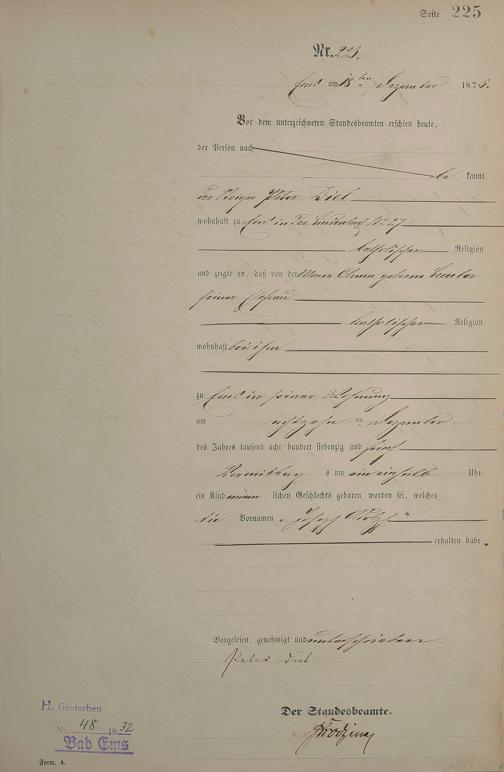 Seite 225
Nr. 221.
Ems am 18ten Dezember 1875.
Vor dem unterzeichneten Standesbeamten erschien heute,
der Person nach
be kannt
der Peter Diel
wohnhaft zu Ems in der No 27
katholischer Religion
und zeigte an, daß von der Maria Anna geborne
seiner Ehefrau
katholischer Religion
wohnhaft bei ihm
zu Ems in seiner Wohnung
am achtzehn ten Dezember
des Jahres tausend acht hundert siebenzig und fünf
Vormittags um Uhr
ein Kind männ lichen Geschlechts geboren worden sei, welches
die Vornamen Joseph
erhalten habe.
Vorgelesen, genehmigt und unterschrieben
Peter Diel
Der Standesbeamte.
H. Gestorben
Nr. 48 1932
Bad Ems
Form. A.